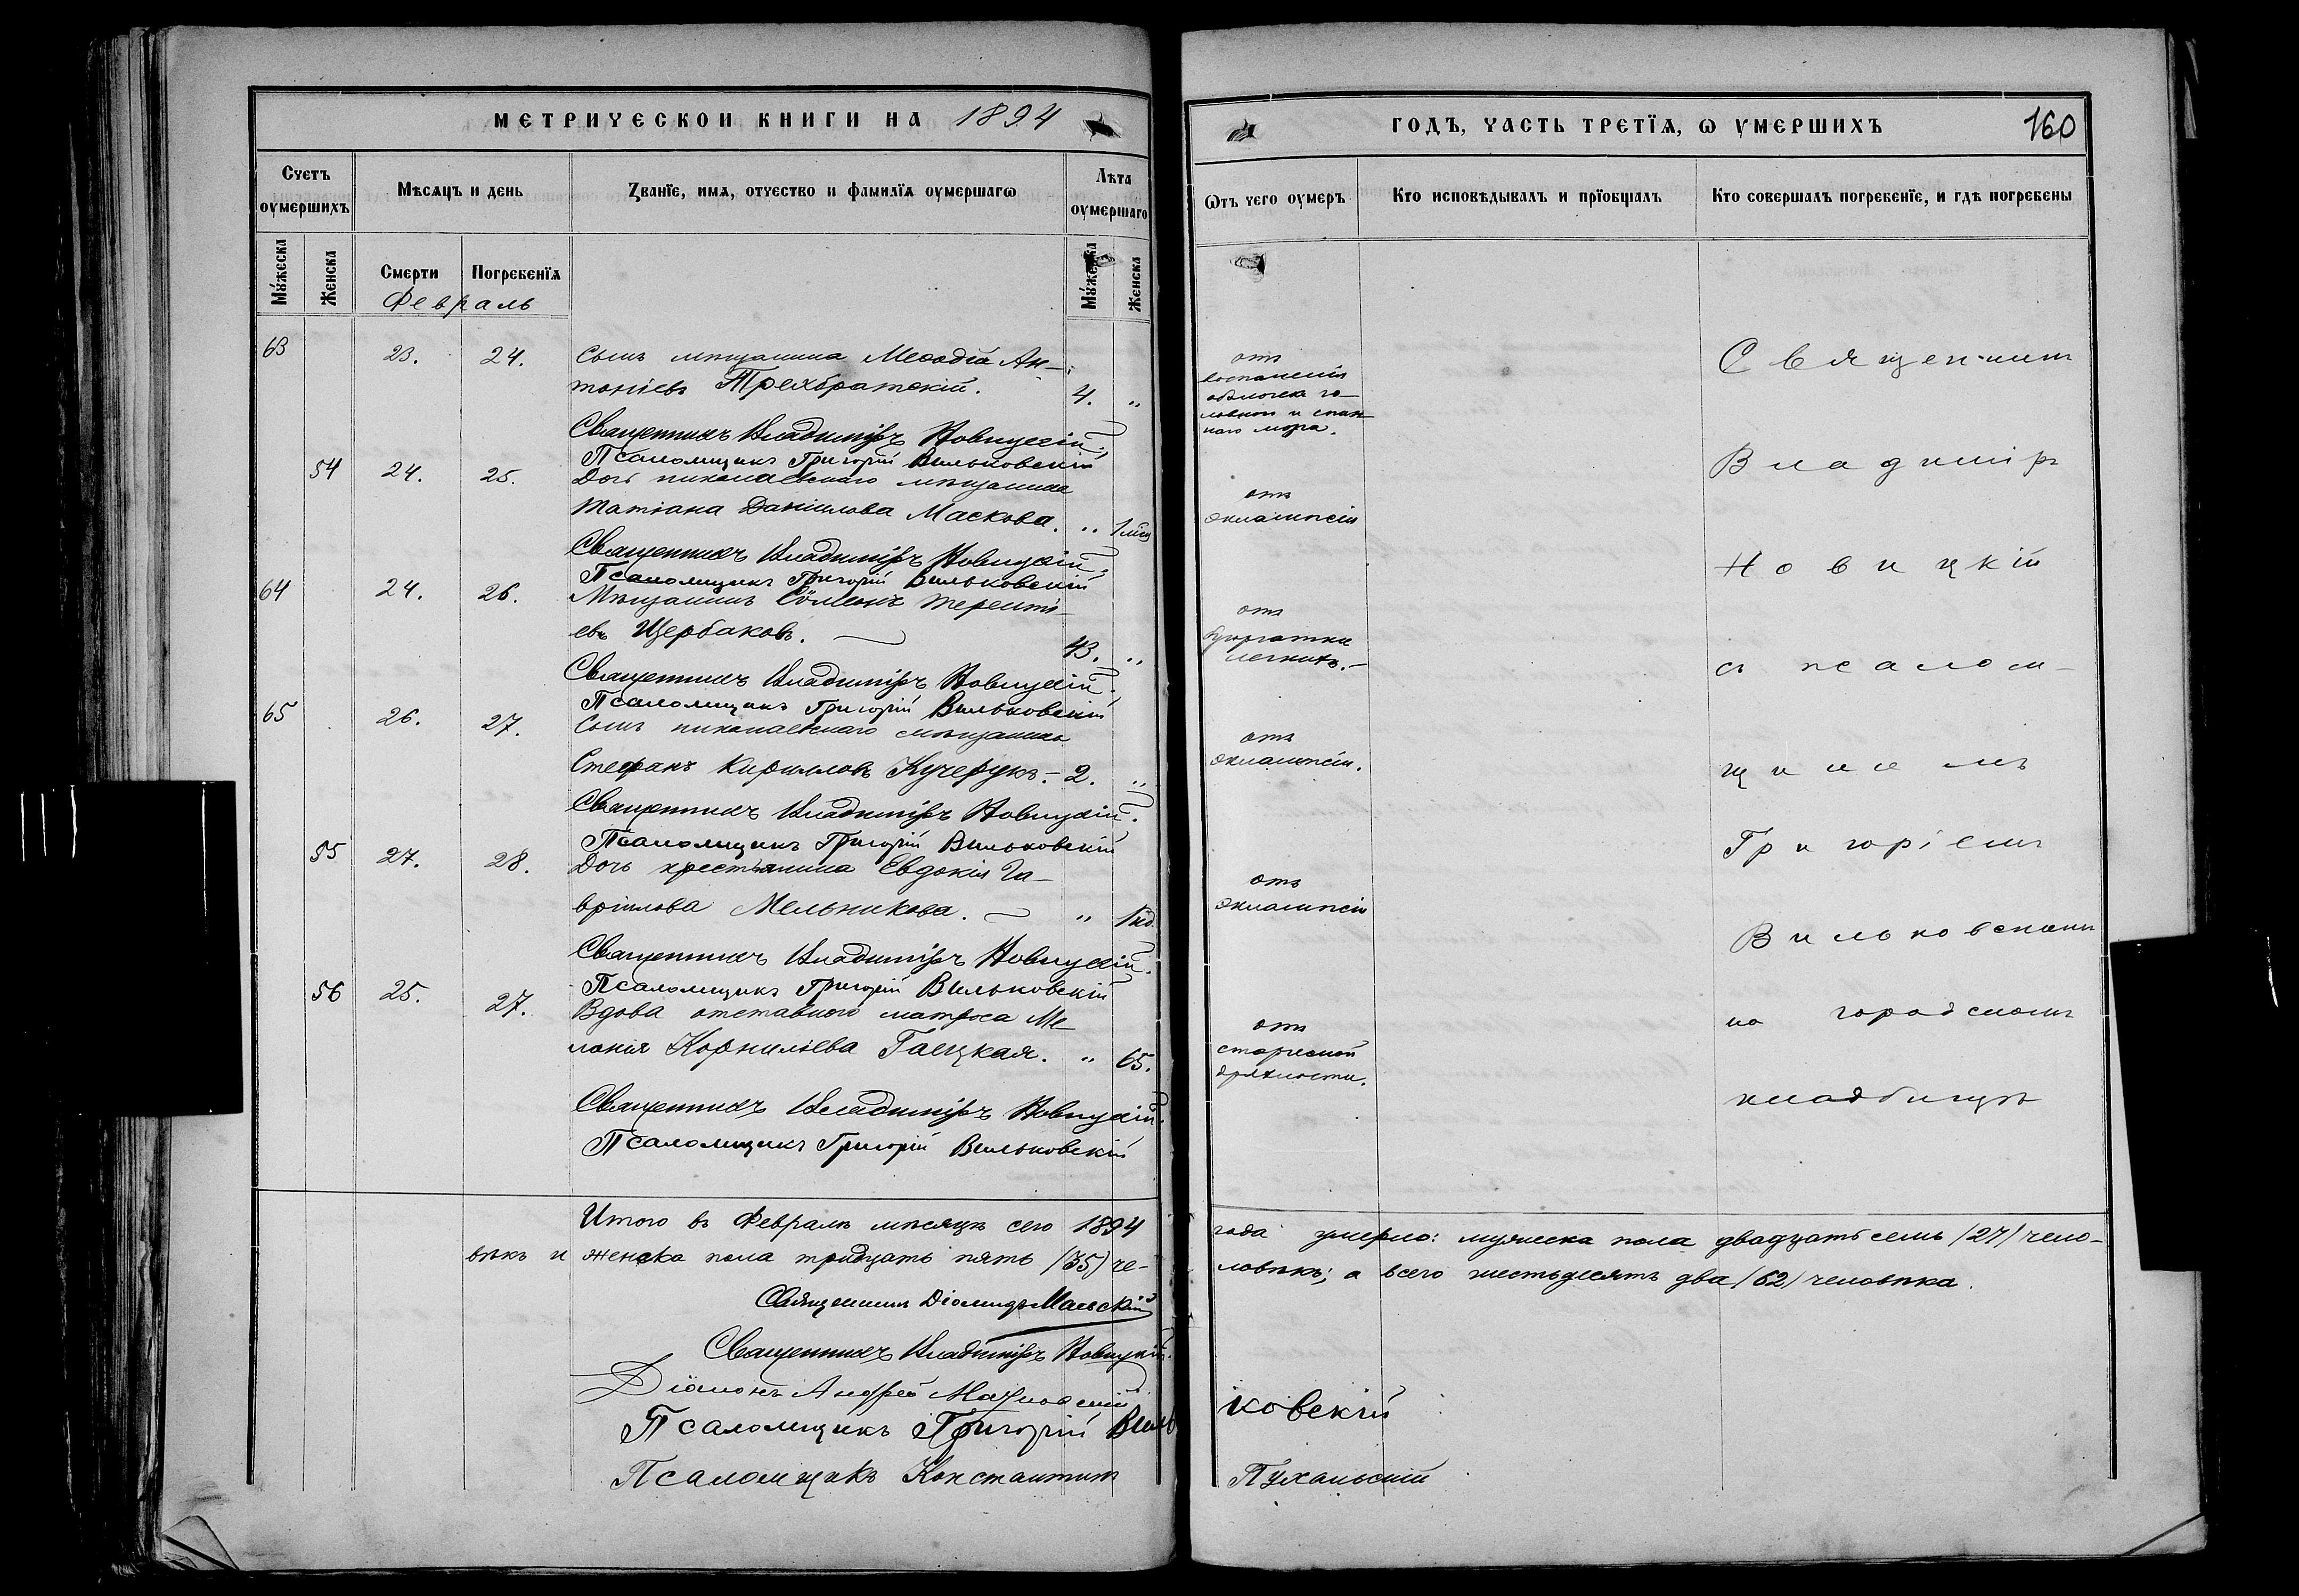 МЕТРИЧЕСКОИ КНИГИ НА 1894
Счетъ оумершихъ
Мѣсяцъ и день
Званїе, имя, отчество и фамилїя оумершагѡ
Лѣта оумершаго
Мужеска
Женска
Смерти
Погребенїя
Февраль
Мужеска
Женска
63 23. 24. Сынъ мѣщанина Меѳодій Ан-
тоніевъ Трехбратскій. 4. "
Священникъ Владиміръ Новицкій.
Псаломщикъ Григорій Вильковскій
54 24. 25. Дочь николаевскаго мѣщанина
Татіана Даніилова Маскова. " 1 мѣс
Священникъ Владиміръ Новицкій.
Псаломщикъ Григорій Вильковскій
64 24. 26. Мѣщанинъ Сѵмеонъ Теренті-
евъ Щербаковъ. 43. "
Священникъ Владиміръ Новицкій.
Псаломщикъ Григорій Вильковскій
65 26. 27. Сынъ николаевскаго мѣщанина
Стефанъ Кирилловъ Кучерукъ. 2. "
Священникъ Владиміръ Новицкій.
Псаломщикъ Григорій Вильковскій
55 27. 28. Дочь крестьянина Евдокія Га-
вріилова Мельникова. " 1
Священникъ Владиміръ Новицкій.
Псаломщикъ Григорій Вильковскій
56 25. 27. Вдова отставного матроса Ме
ланія Корнильева Гаецкая. " 65.
Священникъ Владиміръ Новицкій.
Псаломщикъ Григорій Вильковскій
Итого въ Февралѣ мѣсяцѣ сего 1894
вѣкъ и женска пола тридцать пять (35) че-
Священникъ Діомидъ Маевскій
Священникъ Владиміръ Новицкій.
Діаконъ Андрей
Псаломщикъ Григорій Виль
Псаломщикъ Константинъ
ГОДЪ, ЧАСТЬ ТРЕТЇЯ, Ѡ УМЕРШИХЪ
160
Ѿтъ чего оумеръ
Кто исповѣдывалъ и прїобщалъ
Кто совершалъ погребенїе, и гдѣ погребены
отъ
воспаленія
оболочекъ го-
ловного и спин-
ного мозга.
отъ
эклампсіи
отъ
бугорчатки
легкихъ.-
отъ
эклампсіи.
отъ
эклампсіи
отъ
старческой
дряхлости.
Священникъ
Владиміръ
Новицкій
съ псалом-
щикомъ
Григоріемъ
Вильковскимъ
на городскомъ
кладбищѣ
года умерло: мужеска пола двадцать семь (27) чело-
ловѣкъ; а всего шестьдесятъ два (62) человѣка.
ковскій
Пухальскій